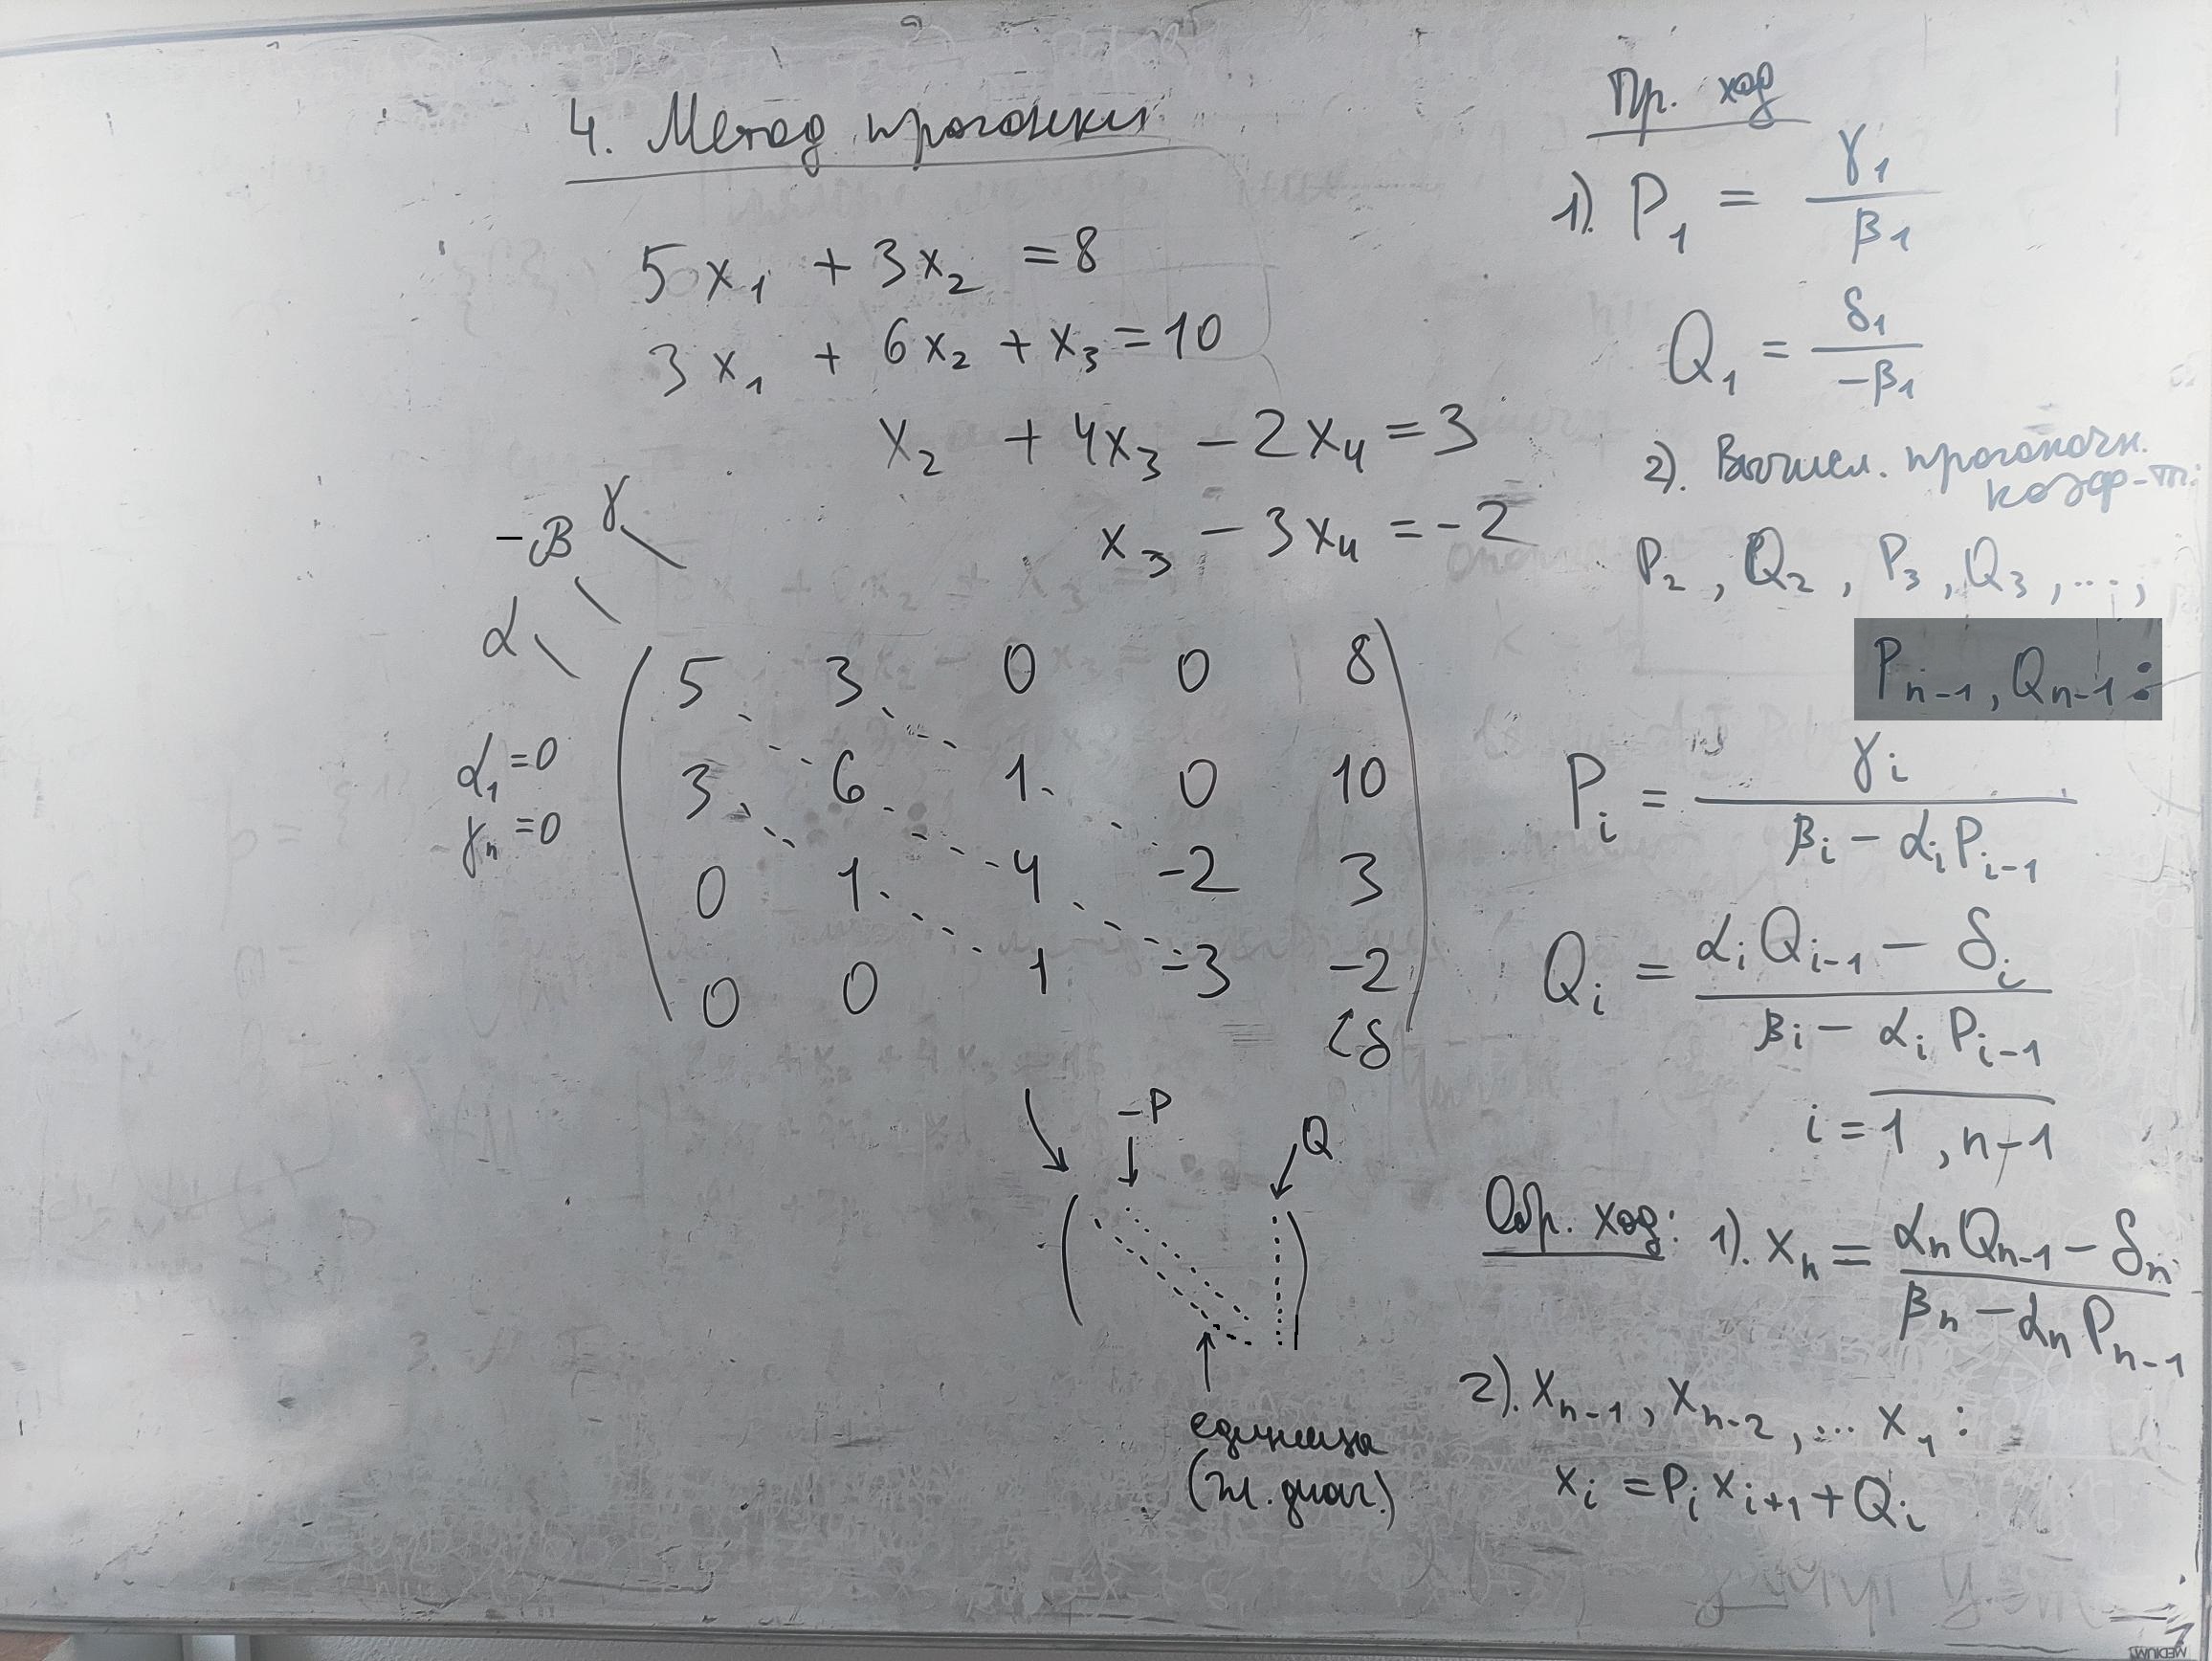 4. Метод прогонки
5x₁ + 3x₂ = 8
3x₁ + 6x₂ + x₃ = 10
x₂ + 4x₃ − 2x₄ = 3
x₃ − 3x₄ = −2
−β γ
α
α₁ = 0
γₙ = 0
5 3 0 0 8
3 6 1 0 10
0 1 4 −2 3
0 0 1 −3 −2
δ
−P
Q
единицы
(гл. диаг.)
Пр. ход
1). P₁ = γ₁ / β₁
Q₁ = δ₁ / −β₁
2). Вычисл. прогоночн.
коэф-ты:
P₂, Q₂, P₃, Q₃, ...,
Pₙ₋₁, Qₙ₋₁:
Pᵢ = γᵢ / βᵢ − αᵢPᵢ₋₁
Qᵢ = αᵢQᵢ₋₁ − δᵢ / βᵢ − αᵢPᵢ₋₁
i = 1, n−1
Обр. ход: 1). xₙ = αₙQₙ₋₁ − δₙ / βₙ − αₙPₙ₋₁
2). xₙ₋₁, xₙ₋₂, ... x₁:
xᵢ = Pᵢxᵢ₊₁ + Qᵢ
MEDIUM